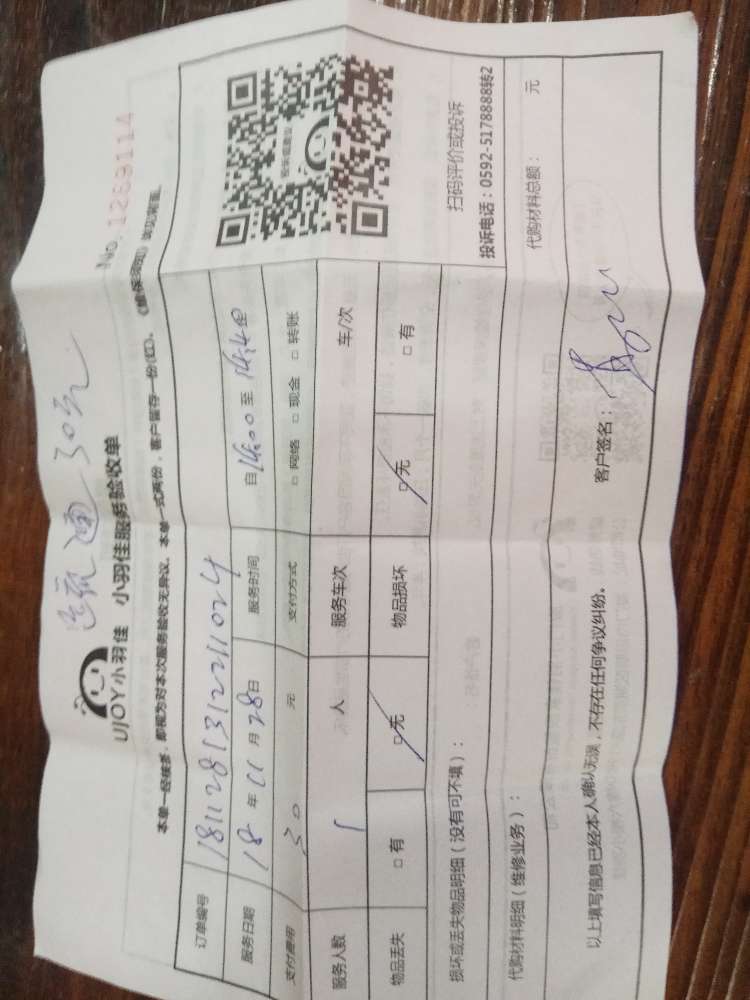 No. 1269114
30元
UJOY小羽佳 小羽佳服务验收单
本单一经核签，即视为对本次服务验收无异议。本单一式两份，客户留存一份(红)、
订单编号 181128131221024
服务日期 18年11月28日 服务时间 自14:00至14:40
支付费用 30 元 支付方式 □ 网络 □ 现金 □ 转账
服务人数 1 人 服务车次 车/次
物品丢失 □ 有 □ 无 物品损坏 □ 无 □ 有
扫码评价或投诉
投诉电话：0592-5178888转2
损坏或丢失物品明细（没有可不填）：
代购材料明细（维修业务）： 代购材料总额： 元
以上填写信息已经本人确认无误，不存在任何争议纠纷。
客户签名：